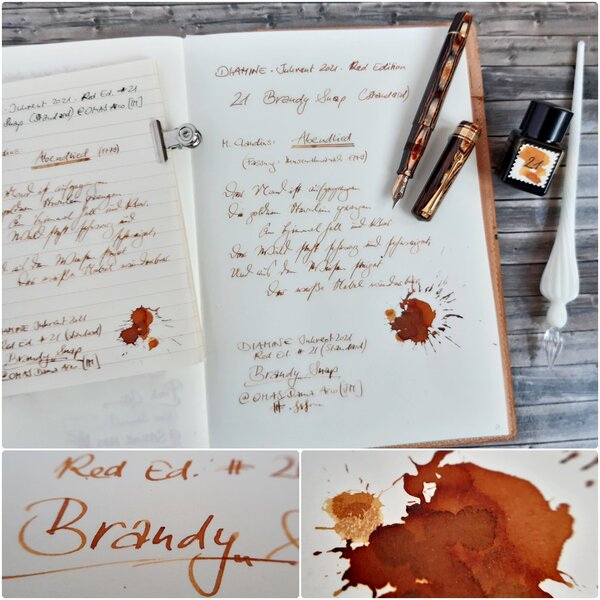 Inkvent 2021. Red Ed. # 21
Snap (Standard) @OMAS Arco [M]
Abendlied
aufgegangen
goldnen Sternlein prangen
Am Himmel hell und klar.
Wald steht schwarz und
schweiget,
aus den Wiesen steiget
weiße Nebel wunderbar
DIAMINE Inkvent 2021
Red Ed # 21 (Standard)
Brandy Snap
@OMAS Dama Arco [M]
DIAMINE - Inkvent 2021 - Red Edition
21 Brandy Snap (Standard)
M. Claudius: Abendlied
(Fassung: Musenalmanach 1779)
Der Mond ist aufgegangen
Die goldnen Sternlein prangen
Am Himmel hell und klar.
Der Wald steht schwarz und schweiget,
Und aus den Wiesen steiget
Der weiße Nebel wunderbar
DIAMINE Inkvent 2021
Red Ed. # 21 (Standard)
Brandy Snap
@OMAS Dama Arco [M]
21
Red Ed. # 21
Brandy S